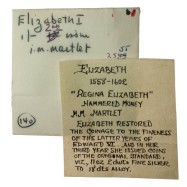 Elizabeth I
2nd issue
i.m. martlet
ELIZABETH
1558-1602
"REGINA ELIZABETH"
HAMMERED MONEY
M.M. MARTLET
ELIZABETH RESTORED
THE COINAGE TO THE FINENESS
OF THE LATTER YEARS OF
EDWARD VI. AND IN HER
THIRD YEAR SHE ISSUED COINS
OF THE ORIGINAL STANDARD,
VIZ., 11oz. 2dwts FINE SILVER
TO 18dts ALLOY.